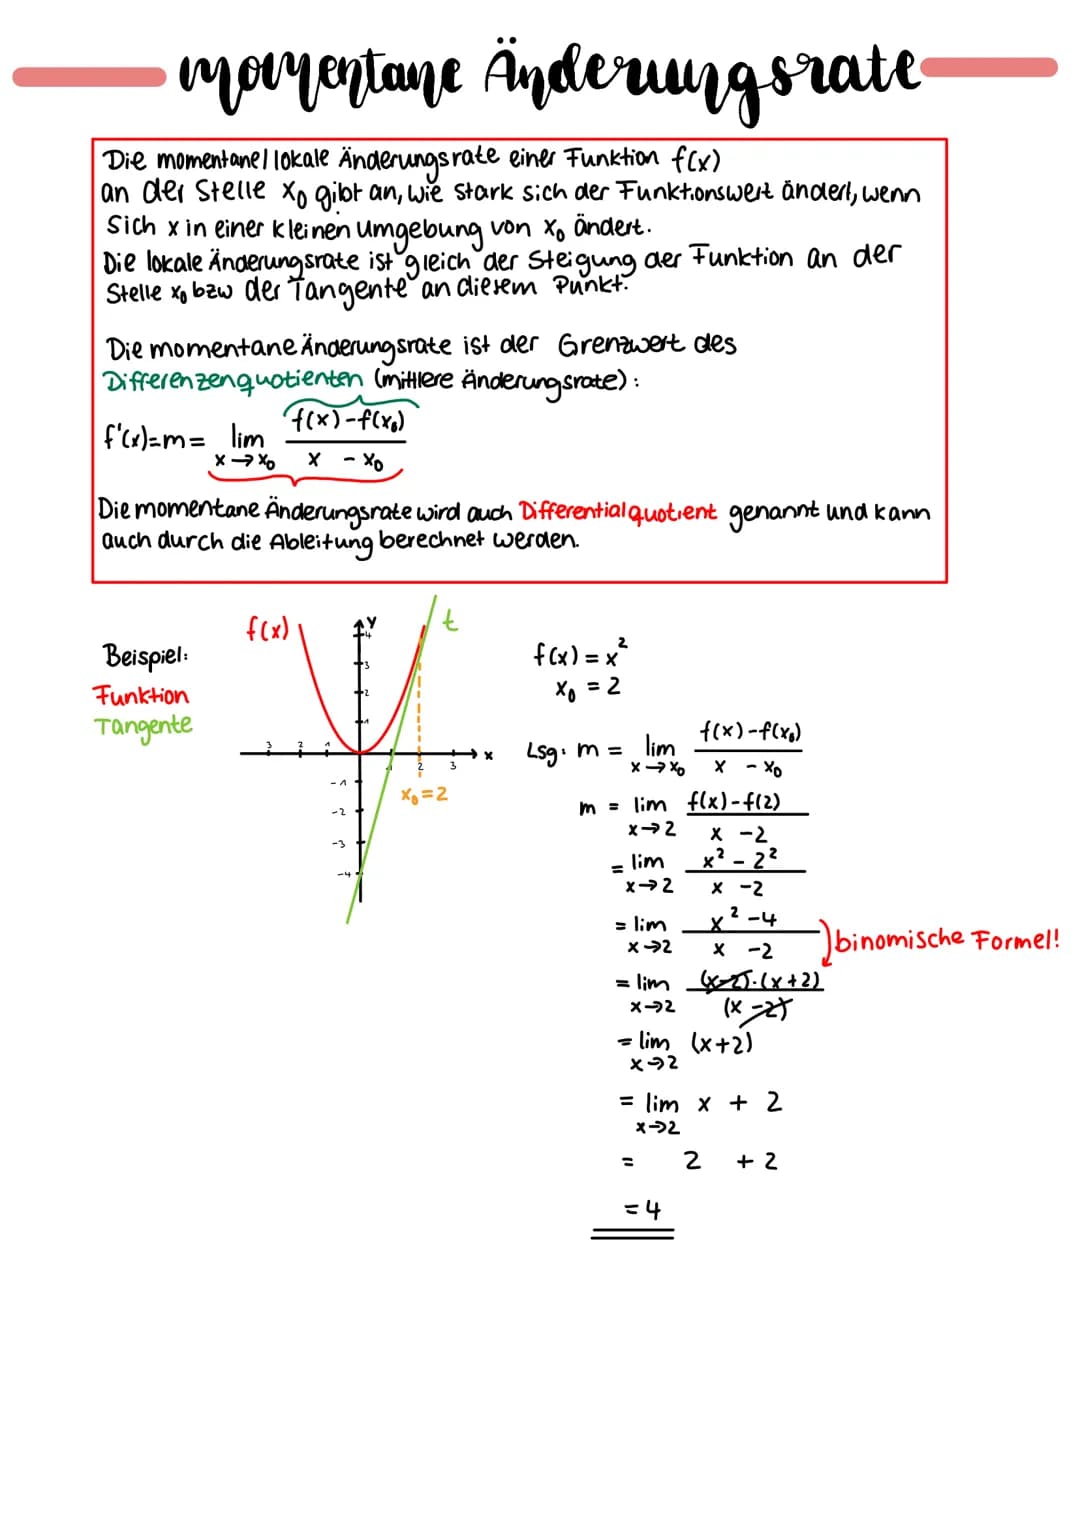 momentane Änderungsrate
Die momentane/lokale Änderungsrate einer Funktion f(x)
an der Stelle x₀ gibt an, wie stark sich der Funktionswert ändert, wenn
sich x in einer kleinen Umgebung von x₀ ändert.
Die lokale Änderungsrate ist gleich der Steigung der Funktion an der
Stelle x₀ bzw der Tangente an diesem Punkt.
Die momentane Änderungsrate ist der Grenzwert des
Differenzenquotienten (mittlere Änderungsrate):
f'(x)=m= lim x→x₀ (f(x)-f(x₀))/(x - x₀)
Die momentane Änderungsrate wird auch Differentialquotient genannt und kann
auch durch die Ableitung berechnet werden.
Beispiel:
Funktion
Tangente
f(x)
t
y
4
3
2
1
3 2 1 1 2 3 x
-1
-2
-3
-4
x₀=2
f(x) = x²
x₀ = 2
Lsg: m = lim x→x₀ (f(x)-f(x₀))/(x - x₀)
m = lim x→2 (f(x)-f(2))/(x -2)
= lim x→2 (x² - 2²)/(x -2)
= lim x→2 (x² -4)/(x -2)
binomische Formel!
= lim x→2 ((x-2)·(x+2))/(x-2)
= lim x→2 (x+2)
= lim x→2 x + 2
= 2 + 2
= 4